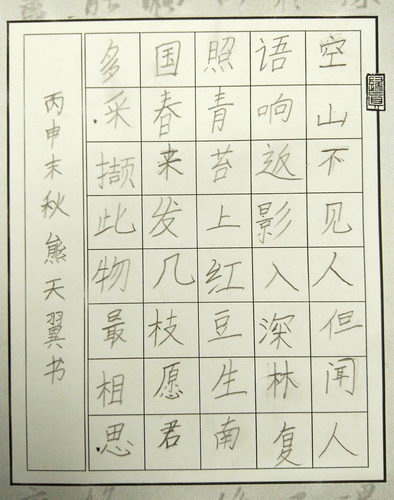 空山不见人但闻人
语响返影入深林复
照青苔上红豆生南
国春来发几枝愿君
多采撷此物最相思
丙申末秋熊天翼书